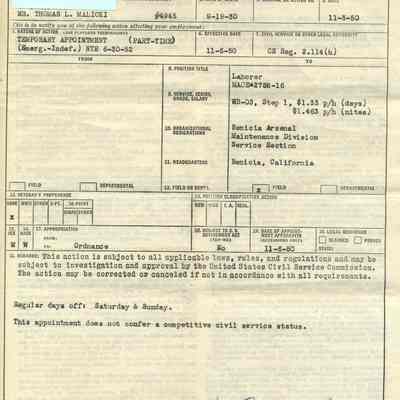 MR. THOMAS L. MALICKI 9-19-30 11-5-50
This is to notify you of the following action affecting your employment:
TEMPORARY APPOINTMENT (PART-TIME)
(Emerg.-Indef.) NTE 6-30-52
6. EFFECTIVE DATE
11-5-50
7. CIVIL SERVICE OR OTHER LEGAL AUTHORITY
CS Reg. 2.114(h)
FROM TO
8. POSITION TITLE
Laborer
9. SERVICE, SERIES, GRADE, SALARY
WB-03, Step 1, $1.33 p/h (days)
$1.463 p/h (nites)
10. ORGANIZATIONAL DESIGNATIONS
Benicia Arsenal
Maintenance Division
Service Section
11. HEADQUARTERS
Benicia, California
FIELD DEPARTMENTAL
12. FIELD OR DEPT.
X FIELD DEPARTMENTAL
13. VETERAN'S PREFERENCE
14. POSITION CLASSIFICATION ACTION
NONE WWII OTHER 5-PT. 10-POINT
NEW VICE I.A. REAL.
X
M W
17. APPROPRIATION
Ordnance
No
11-5-50
20. LEGAL RESIDENCE
CLAIMED PROVED
21. REMARKS: This action is subject to all applicable laws, rules, and regulations and may be
subject to investigation and approval by the United States Civil Service Commission.
The action may be corrected or canceled if not in accordance with all requirements.
Regular days off: Saturday & Sunday.
This appointment does not confer a competitive civil service status.